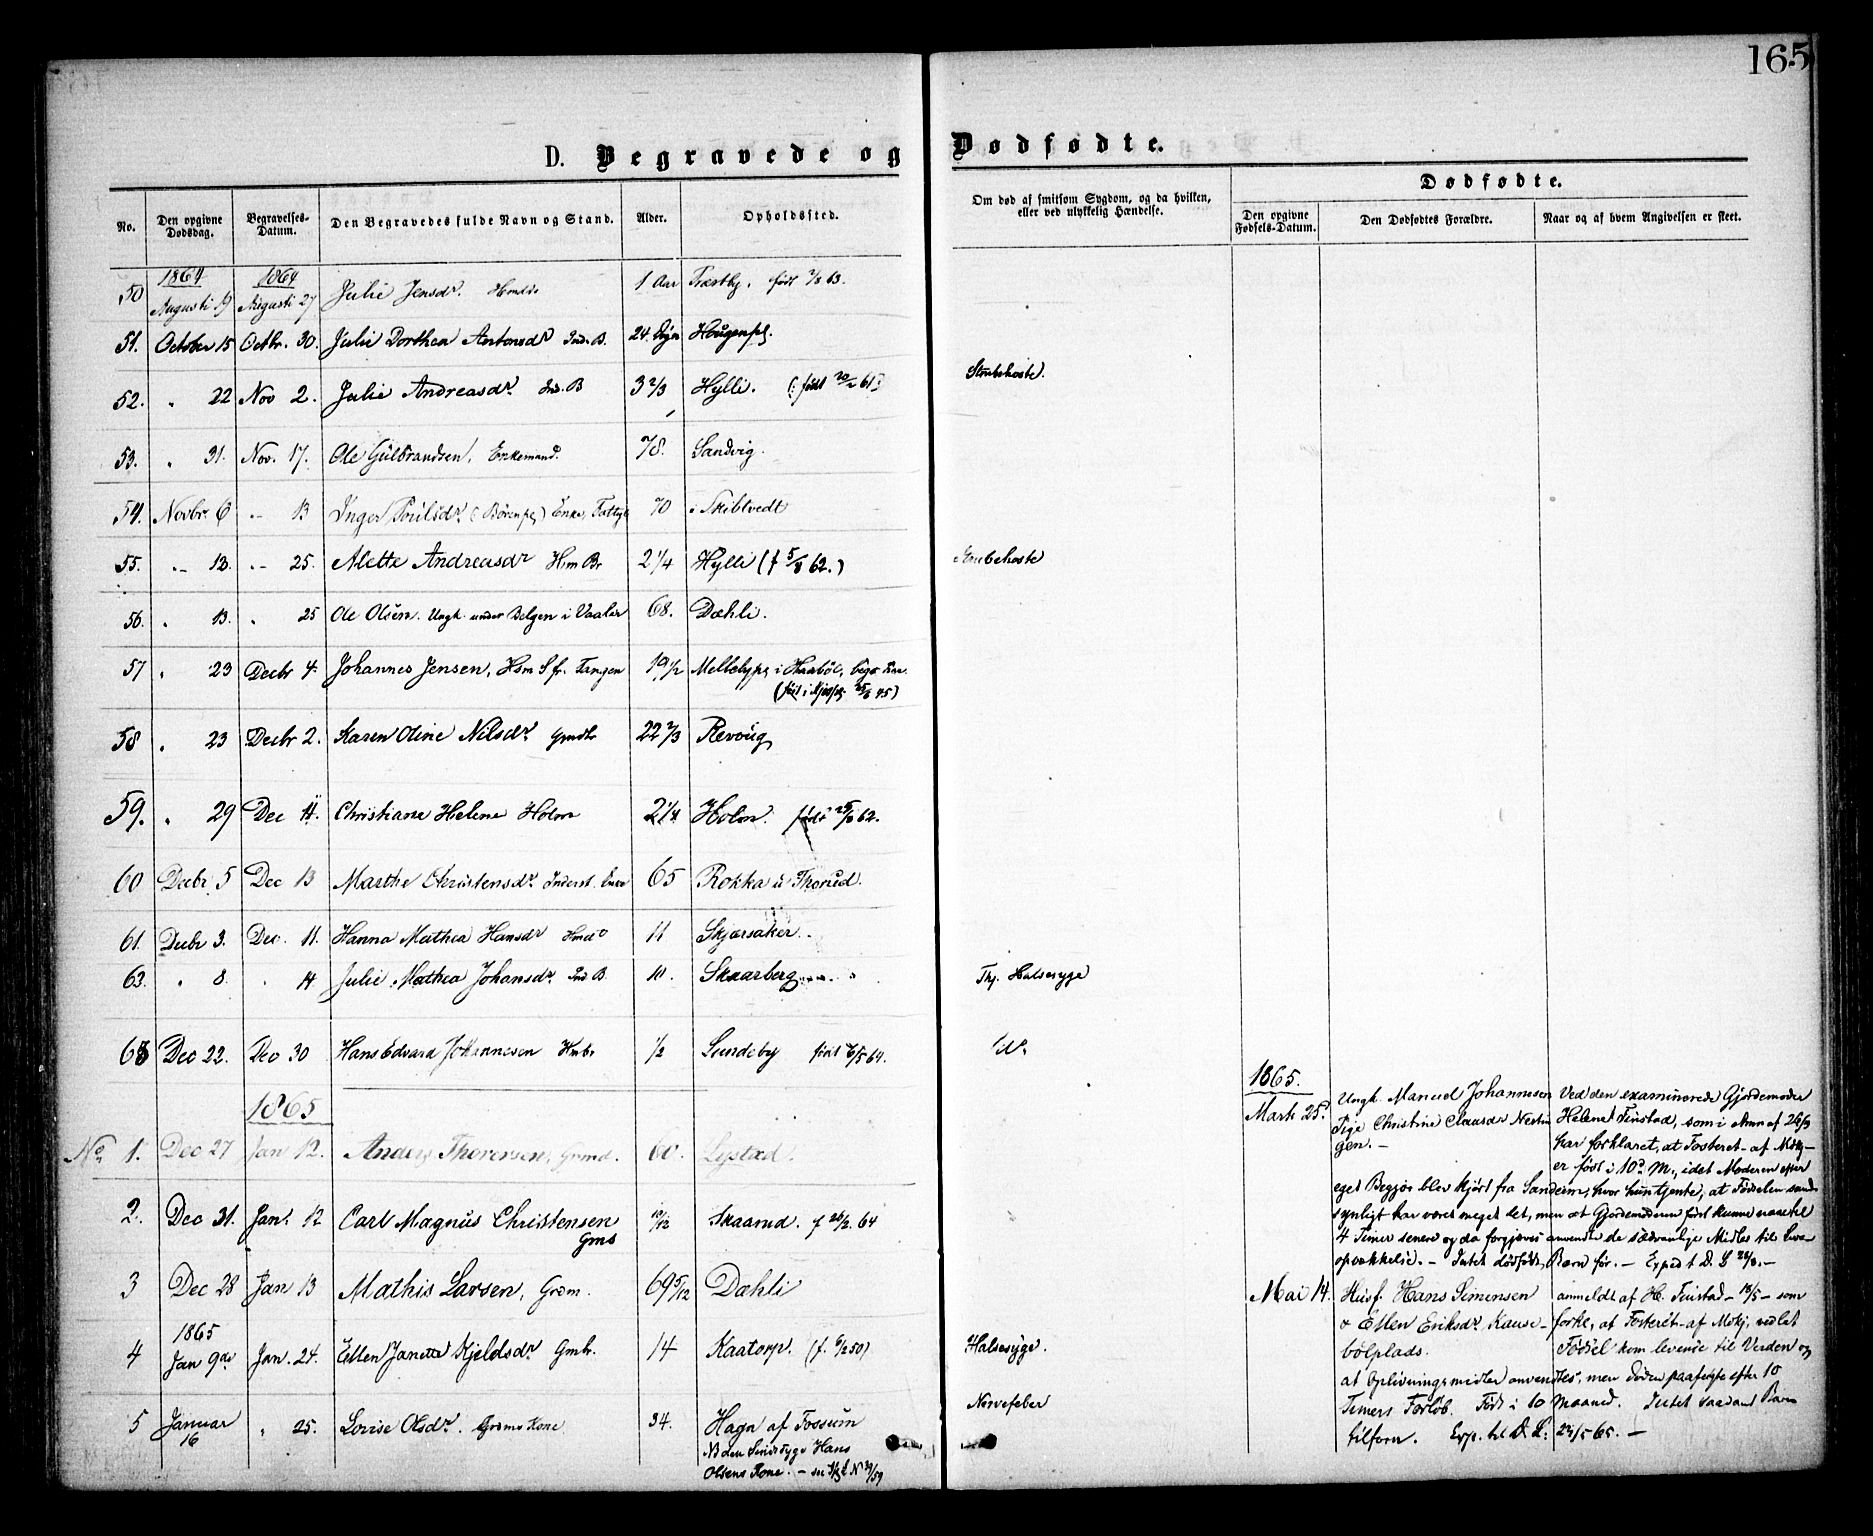 165
D. Begravede og Dødfødte.
No. Den opgivne Dødsdag. Begravelses-Datum. Den Begravedes fulde Navn og Stand. Alder. Opholdssted. Om død af smitsom Sygdom, og da hvilken, eller ved ulykkelig Hændelse. Dødfødte.
Den opgivne Fødsels-Datum. Den Dødfødtes Forældre. Naar og af hvem Angivelsen er skeet.
1864 1864
50 Augusti 19 Augusti 27 Julie Jensdr. 1 Aar Træstby. født 7/8 63.
51. October 15 Octbr. 30. Julie Dorthea Antonsdr Ind. B. 24. Dage Hougenpl.
52. " 22 Nov 2. Julie Andreasdr. Ind. B 3 2/3 Hylli. (: født 20/2 61 :) Strubehoste.
53. " 31. Nov. 17. Ole Gulbrandsen, Enkemand. 78. Sandvig.
54. Novbr. 6 " 13 Inger Poulsdr. (Börenpl) Enke, Fattig 70 i Skibtvedt
55. " 13. " 25. Mette Andreasdr Hm Br 2 1/4 Hylli (f 5/8 62.) Strubehoste
56. " 13. " 25 Ole Olsen. Ungk. under Belgen i Vaaler 68. Dæhli.
57 " 23 Decbr 4. Johannes Jensen, Hsm S fr. Tangen 19 1/2 Mellebypl i Haabøl,
58 " 23 Decbr 2. Karen Oline Nilsdr. Gmdtr 22 2/3 Revoug
59. " 29 Dec 11. Christiane Helene Holm 2 1/4 Holm. født 25/8 62.
60 Decbr 5 Dec 13 Marthe Christensdr. Inderst. Enke 65 Rokka u Thorud.
61. Decbr 3. Dec. 11. Hanna Mathea Hansdr 11 Skjørsaker.
63. " 8. " 14 Julie Mathea Johansdr. Ind B. 10. Skaarberg Thj. Halsesyge
63 Dec 22. Dec 30 Hans Edvard Johannesen Hmbr 1/2 Sundeby født 6/5 64.
1865
No 1. Dec 27 Jan 12. Anders Thoresen, Grmd. 60. Lystad.
2. Dec 31. Jan. 12 Carl Magnus Christensen 10/12 Skaarud. f 26/2 64
Gms
3 Dec 28 Jan 13 Mathis Larsen, Grdm. 69 5/12 Dæhli
1865
4 Jan 9de Jan. 24. Ellen Janette Kjeldsdr Gmbr. 14 Kaatorp. (f. 6/2 50) Halsesyge.
5 Januar 16 " 25. Lovise Olsdr. Grdms Kone 34. Hagn af Fossum Nervefeber
NB den Sindssyge Hans
Olsens Kone. -
1865.
Mark 25. Ungk. Manuel Johannesen
Pige Christine Claasdr Nestin
gen. -
Ved den examinerede Gjordemoder
Helene Tiustad, som i Anm af 26/3
har forklaret, at Fosteret - af Mdkj -
er født i 10de M., idet Moderen efter
eget Begjær blev kjørt fra Sanderm, hvor hun tjente, at Fødselen sand-
synligt har været meget let, men at Gjordemoderen først kunne naae til
4 Timer senere og da forgjæves anvendte de sædvanlige Midler til Livs
opvækkelse. - Intet dødfødt Barn før. -
Mai 14. Husf. Hans Simensen
& Ellen Eriksdr. Kause-
bölplads.
anmeldt af H. Tiustad - 18/5 - som
forkl, at Fosteret - af Mdkj, ved let
Fødsel kom levende til Verden og
at Oplivningsmidler anvendtes, men Døden paafulgte efter 10
Timers Forløb. Født i 10 Maaned. Intet saadant Barn
tilforn. Exp. til D. L: 24/5 65. -